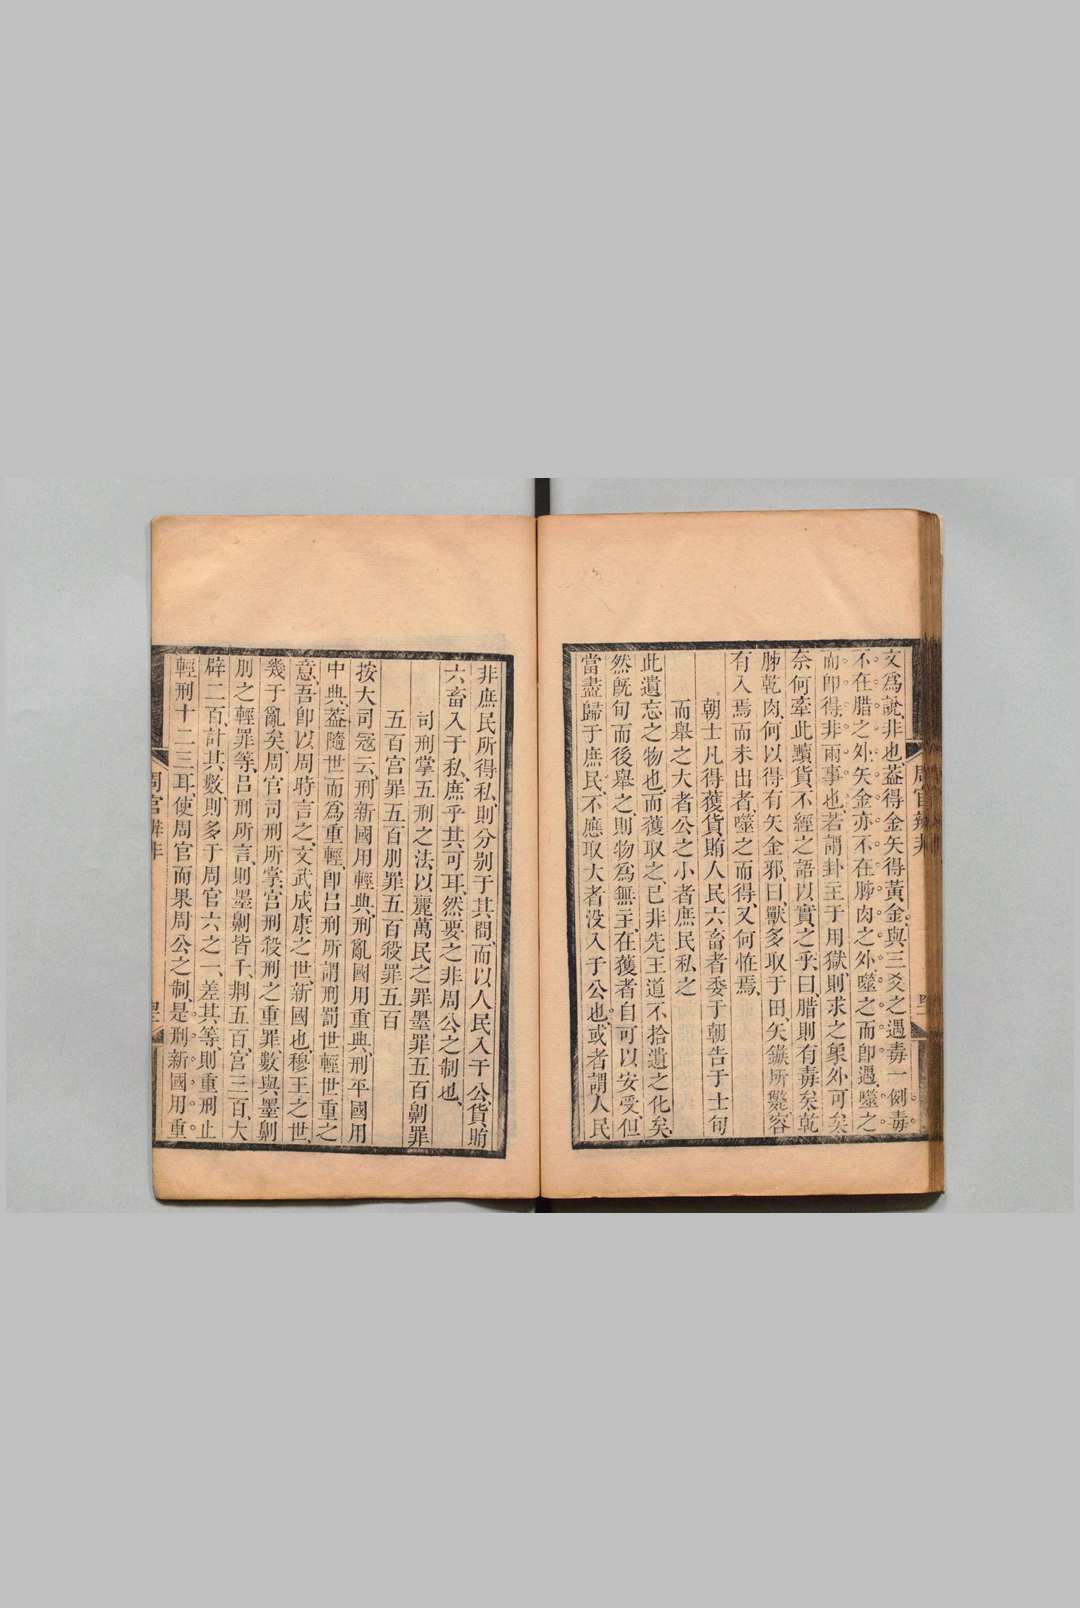 文爲說、非也、蓋得金矢得黃金、與三爻之遇毒一例、毒
不在腊之外、矢金亦不在胏肉之外、噬之而卽遇、噬之
而卽得、非兩事也、若謂卦主于用獄、則求之象外可矣、
奈何牽此黷貨不經之語以實之乎、曰、腊則有毒矣、乾
胏乾肉、何以得有矢金邪、曰、獸多取于田、矢鏃所斃、容
有入焉而未出者、噬之而得、又何恠焉、
朝士凡得獲貨賄人民六畜者委于朝告于士旬
而舉之大者公之小者庶民私之
此遺忘之物也、而獲取之、已非先王道不拾遺之化矣、
然旣旬而後舉之、則物爲無主、在獲者自可以安受、但
當盡歸于庶民、不應取大者没入于公也、或者謂人民
周官辨非
非庶民所得私、則分别于其間、而以人民入于公、貨賄
六畜入于私、庶乎其可耳、然要之非周公之制也、
司刑掌五刑之法以麗萬民之罪墨罪五百劓罪
五百宫罪五百刖罪五百殺罪五百
按大司寇云、刑新國用輕典、刑亂國用重典、刑平國用
中典、蓋隨世而爲重輕、卽吕刑所謂刑罰世輕世重之
意、吾卽以周時言之、文武成康之世、新國也、穆王之世、
幾于亂矣、周官司刑所掌、宫刑殺刑之重罪數與墨劓
刖之輕罪等、吕刑所言、則墨劓皆千、剕五百、宫三百、大
辟二百、計其數則多于周官六之一、差其等、則重刑止
輕刑十二三耳、使周官而果周公之制、是刑新國用重
周官辨非